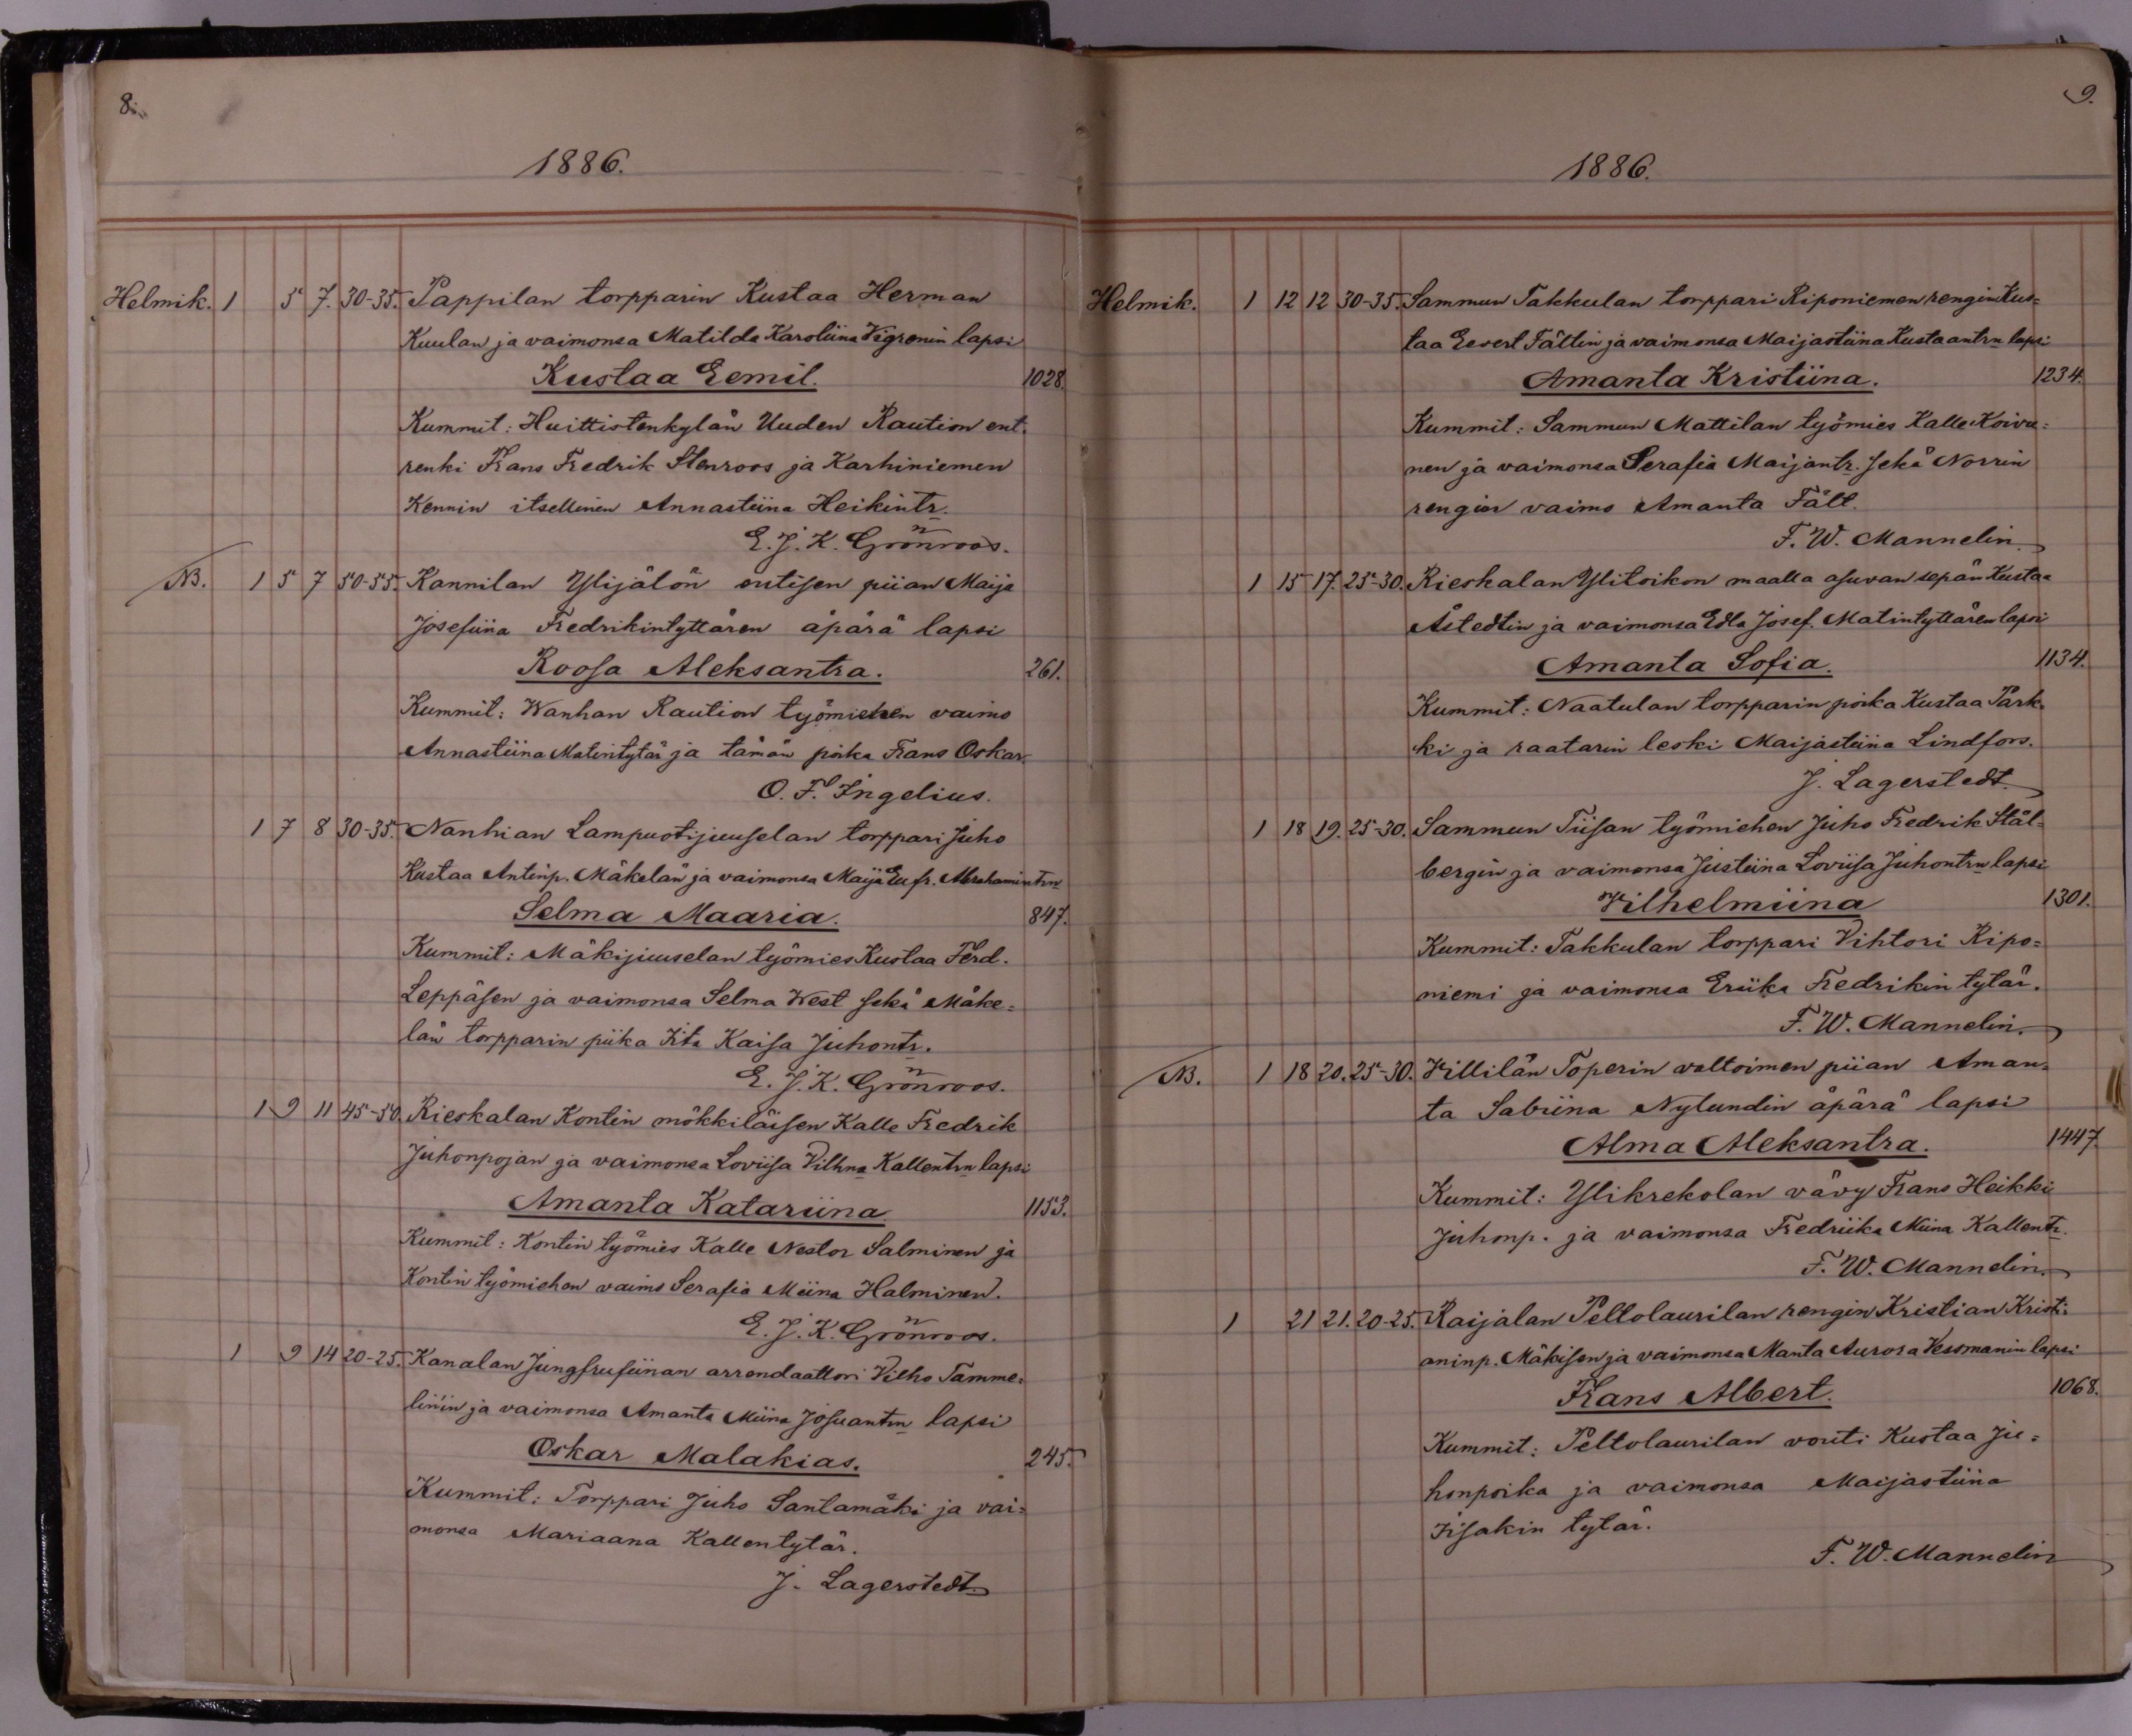 8.
1886.
Helmik. 1 5 7. 30-35. Pappilan torpparin Kustaa Herman
Kuulan ja vaimonsa Matilda Karoliina Vigrenin lapsi
Kustaa Eemil. 1028.
Kummit: Huittistenkylän Uuden Raution ent.
renki Frans Fredrik Stenroos ja Karhiniemen
Kennin itsellinen Annastiina Heikintr.
E. J. K. Grönroos.
NB. 1 5 7 50-55. Kannilan Ylijälön entisen piian Maija
Josefiina Fredrikintyttären äpärä lapsi
Roosa Aleksantra. 261.
Kummit: Wanhan Raution työmiehen vaimo
Annastiina Matintytär ja tämän poika Frans Oskar.
O. F. Ingelius.
1 7 8 30-35. Nanhian Lampuotijuuselan torppari Juho
Kustaa Antinp. Mäkelän ja vaimonsa Maija Eufr. Abrahamintrn
Selma Maaria. 847.
Kummit: Mäkijuuselan työmies Kustaa Ferd.
Leppäsen ja vaimonsa Selma West sekä Mäke=
län torpparin piika Iita Kaisa Juhontr.
E. J. K. Grönroos.
1 9 11 45-50. Rieskalan Kontin mökkiläisen Kalle Fredrik
Juhonpojan ja vaimonsa Loviisa Vilhna Kallentrn lapsi
Amanta Katariina 1153.
Kummit: Kontin työmies Kalle Nestor Salminen ja
Kontin työmiehen vaimo Serafia Miina Halminen.
E. J. K. Grönroos.
1 9 14 20-25. Kanalan Jungfrufiinan arrendaattori Vilho Tamme=
linin ja vaimonsa Amanta Miina Josuantrn lapsi
Oskar Malakias. 245.
Kummit: Torppari Juho Santamäki ja vai=
monsa Mariaana Kallentytär.
J. Lagerstedt.
9.
1886.
Helmik. 1 12 12 30-35. Sammun Takkulan torppari Riponiemen rengin Kus=
taa Eevert Fältin ja vaimonsa Maijastiina Kustaantrn lapsi
Amanta Kristiina. 1234.
Kummit: Sammun Mattilan työmies Kalle Koivu=
nen ja vaimonsa Serafia Maijantr. sekä Norrin
rengin vaimo Amanta Fält.
F. W. Mannelin.
1 15 17. 25-30. Rieskalan Ylitoikon maalla asuvan sepän Kustaa
Åstedtin ja vaimonsa Edla Josef. Matintyttären lapsi
Amanta Sofia. 1134.
Kummit: Naatulan torpparin poika Kustaa Park=
ki ja raatarin leski Maijastiina Lindfors.
J. Lagerstedt.
1 18 19. 25-30. Sammun Tiisan työmiehen Juho Fredrik Stål=
bergin ja vaimonsa Justiina Loviisa Juhontrn lapsi
Vilhelmiina 1301.
Kummit: Takkulan torppari Vihtori Ripo=
niemi ja vaimonsa Eriika Fredrikin tytär.
F. W. Mannelin.
NB. 1 18 20. 25-30. Villilän Toperin valtoimen piian Aman=
ta Sabiina Nylundin äpärä lapsi
Alma Aleksantra. 1447.
Kummit: Ylikrekolan vävy Frans Heikki
Juhonp. ja vaimonsa Fredriika Miina Kallentr.
F. W. Mannelin.
1 21 21. 20-25. Raijalan Peltolaurilan rengin Kristian Kristi=
aninp. Mäkisen ja vaimonsa Manta Aurora Vessmanin lapsi
Frans Albert. 1068.
Kummit: Peltolaurilan vouti Kustaa Ju=
honpoika ja vaimonsa Maijastiina
Iisakin tytär.
F. W. Mannelin